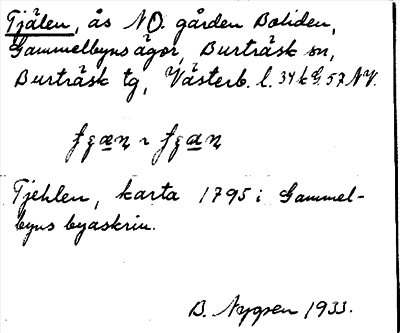 Tjälen, ås NO. gården Boliden,
Gammelbyns ägor, Burträsk sn,
Burträsk tg, Västerb. l. 34 k G. 57 NV.
Tjehlen, karta 1795 i Gammel-
byns byaskrin.
B. 1933.